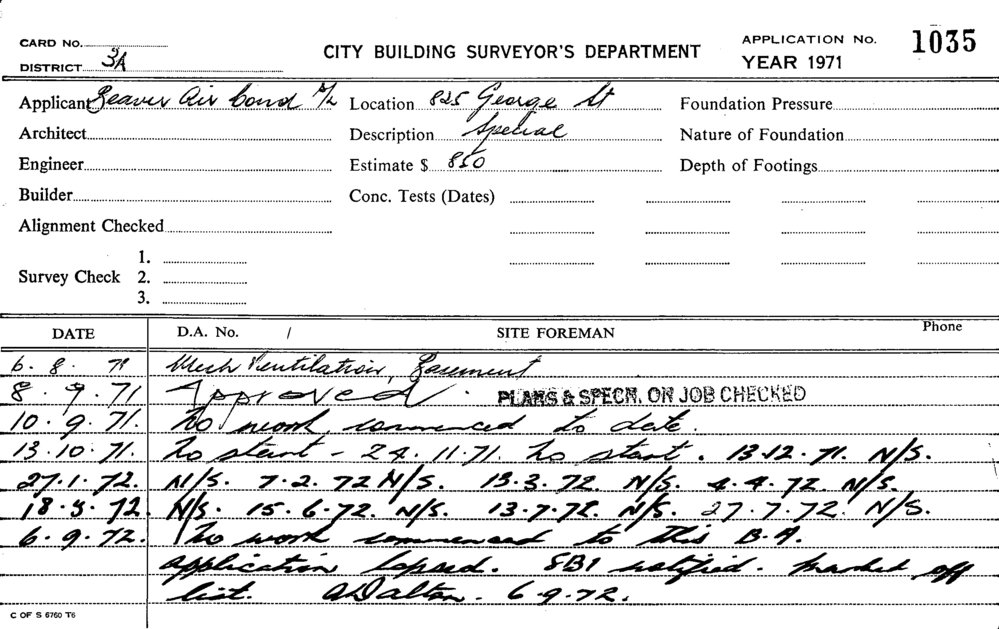 CARD No.
DISTRICT 3A
CITY BUILDING SURVEYOR'S DEPARTMENT
APPLICATION No. 1035
YEAR 1971
Applicant Beaver Air Cond P/L
Location 825 George St
Foundation Pressure
Architect
Description Special
Nature of Foundation
Engineer
Estimate $ 850
Depth of Footings
Builder
Conc. Tests (Dates)
Alignment Checked
Survey Check
1.
2.
3.
DATE D.A. No. / SITE FOREMAN Phone
6. 8. 71 Mech Ventilation, Basement
8. 9. 71 Approved. PLANS & SPECN. ON JOB CHECKED
10. 9. 71. No work commenced to date.
13. 10. 71. No start - 24. 11. 71. No start. 13.12. 71. N/S.
27. 1. 72. N/S. 7. 2. 72 N/S. 13. 3. 72 N/S. 4. 4. 72 N/S.
18. 5. 72. N/S. 15. 6. 72. N/S. 13. 7. 72. N/S. 27. 7. 72. N/S.
6. 9. 72. No work commenced to this B.A.
application lapsed. SBI notified. marked off
list. A Dalton. 6. 9. 72.
C OF S 6760 T6